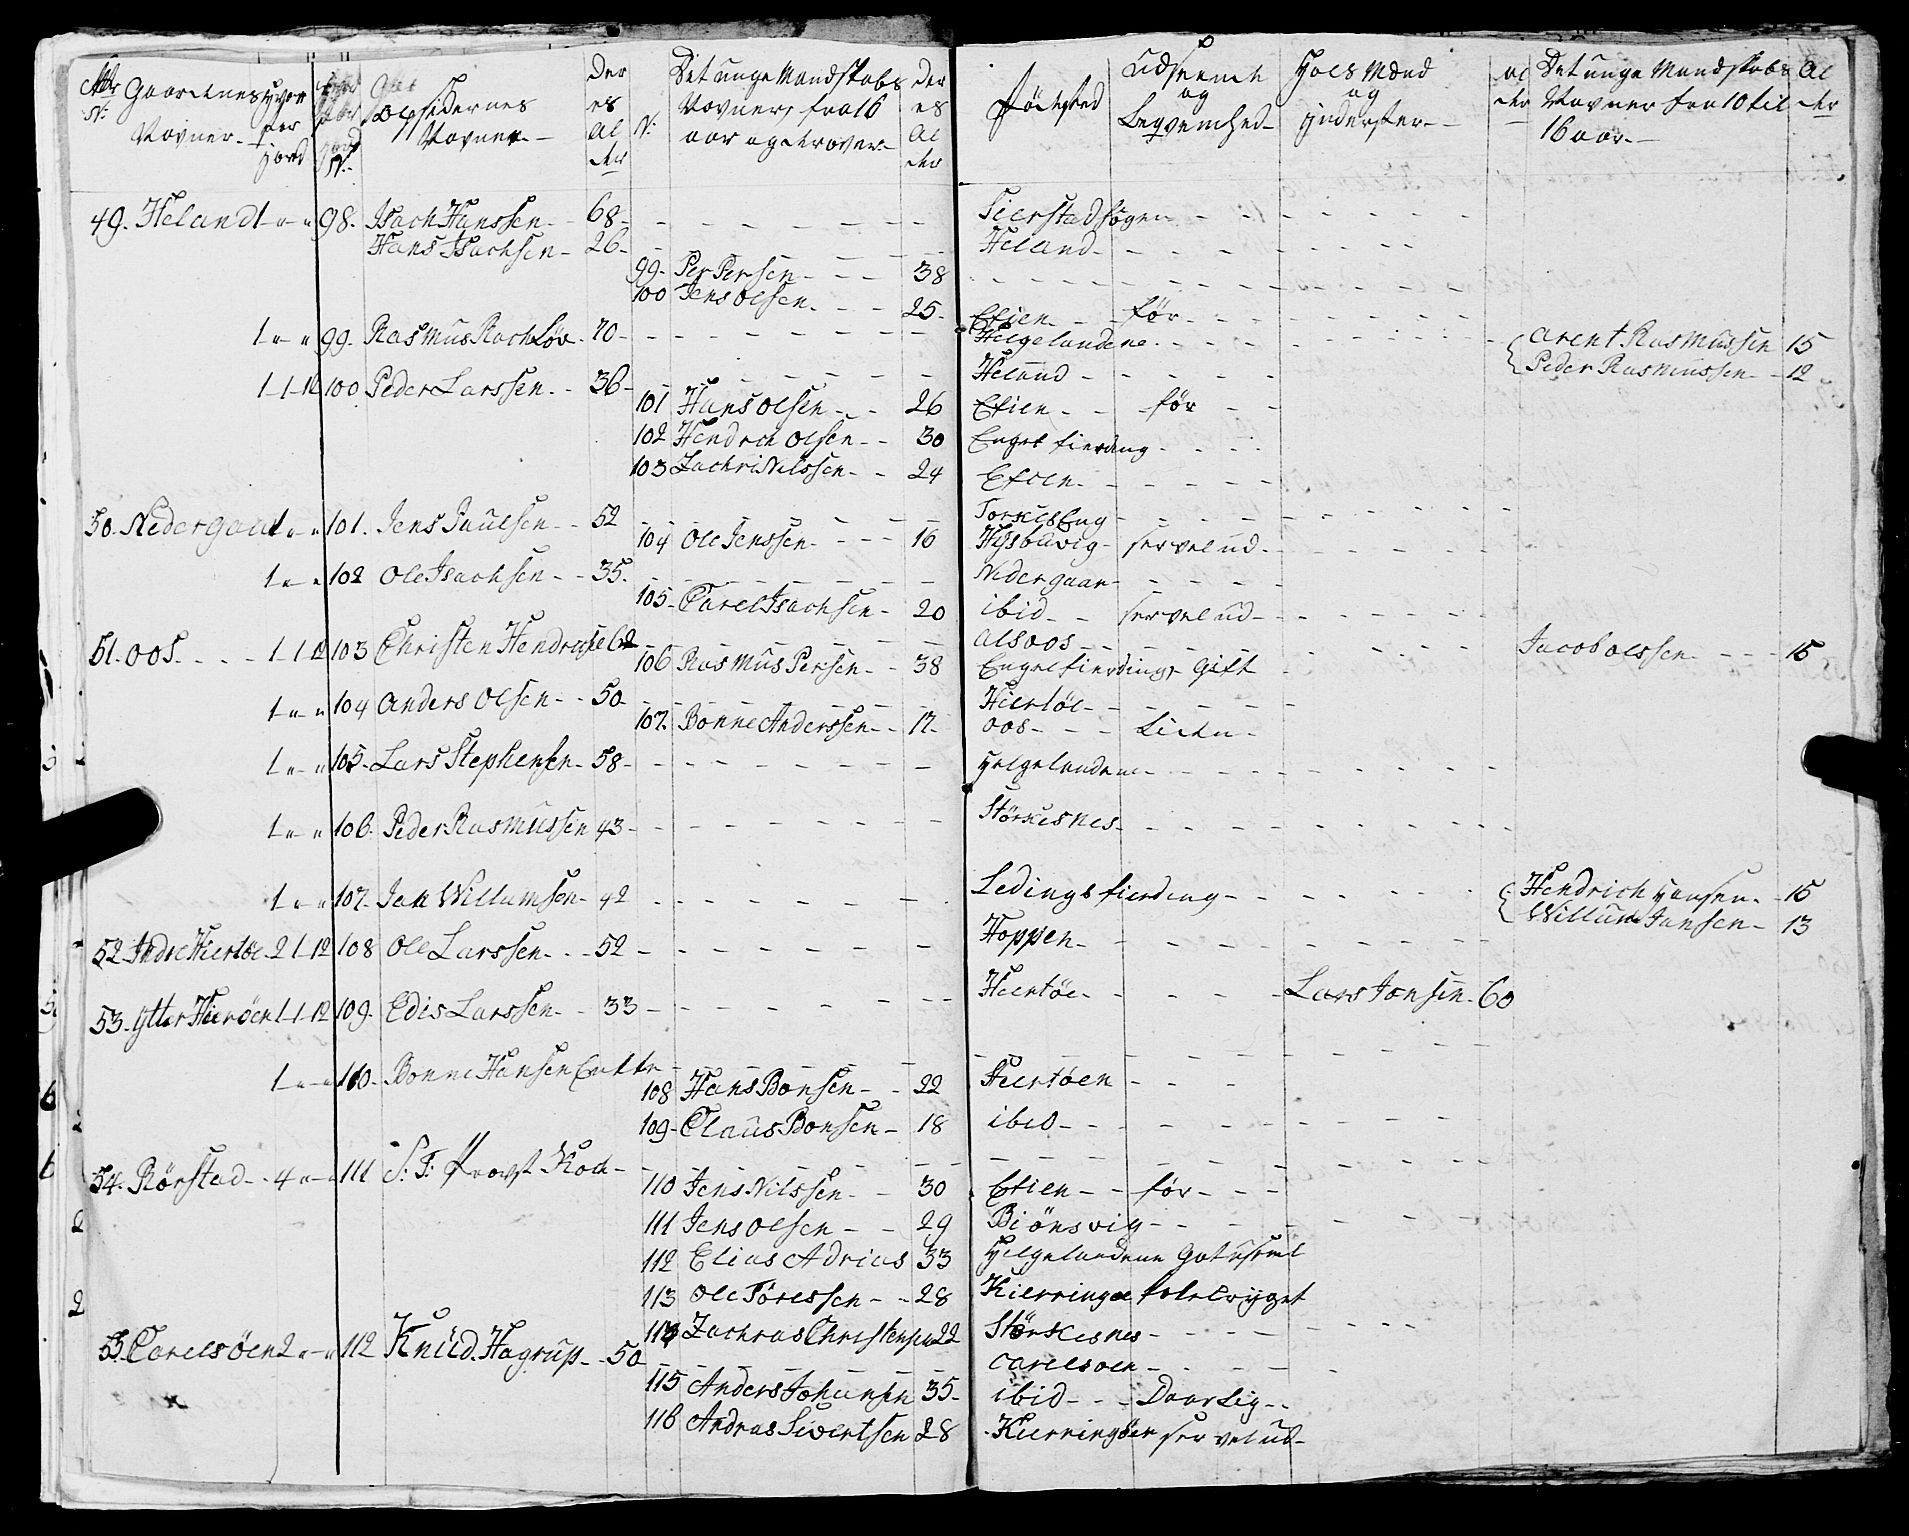 Gaardenes Navner Hvor stor Jord No. Opsidernes Navner Deres Alder N: Det unge Mandskabs Navner, fra 16 aar og derover Deres Alder Fødested Udseende og Beqvemhed Huusmænd og Jnderster Alder Det unge Mandskabs Navner fra 10 til 16 aar Alder
49. Heland 1 " " 98. Isach Hanssen 68 Sierstad sogn
Hans Isachsen 26 Heland
99 Per Persen 38
100 Jens Olsen 25 Efien før
1 " " 99. Rasmus Rachløv 70 Helgelandene Arent Rasmussen 15
Peder Rasmussen 12
1-1-12 100 Peder Larssen 36 Heland
101 Hans Olsen 26 Efien før
102 Hendrich Olsen 30 Engel fierding
103 Zachri Nilssen 24 Efien
50. Nedergaard 1 " " 101. Jens Paulsen 52 Torkels Eng
104 Ole Jenssen 16 Husbuvig ser vel ud
1 " " 102 Ole Isachsen 35 Nedergaar
105 Carel Isachsen 20 ibid ser vel ud
51. Oos 1-1-12 103 Christen Hendrichse 62 Alsoos Jacob Olssen 15
106 Rasmus Persen 38 Engel fierding Gift
1 " " 104 Anders Olsen 50 Hiertøe
107. Bonne Anderssen 17 Oos Liden
1 " " 105 Lars Stephensen 58 Helgelandene
1 " " 106 Peder Rasmussen 43 Størkesnes
1 " " 107. Jan Willumsen 42 Ledings fierding Hendrich Hansen 15
Willum Jansen 13
52 Indre Hiertøe 2 1-12 108 Ole Larssen 52 Hoppen
53. Ytter Hierøen 1-1-12 109. Edis Larssen 33 Hiertøe Lars Jonsen 60
1 " " 110. Bonne Hansen Encke
108 Hans Bonsen 22 Hiertøen
109 Claus Bonsen 18 ibid
54. Rørstad 4 " " 111 S: T: Provst Koch
110 Jens Nilssen 30 Efien før
111 Jens Olsen 29 Biønsvig
112 Elias Adrias 33 Helgelandene
113 Ole Tøressen 28 Kierringøe
114 Zachras Christensen 22 Størkesnes
55. Carelsøen 2 " " 112 Knud Hagrup 50 Carelsoen
115 Anders Johansen 35 ibid Daarlig
116 Andras Sivertsen 28 Kierringøen ser vel ud